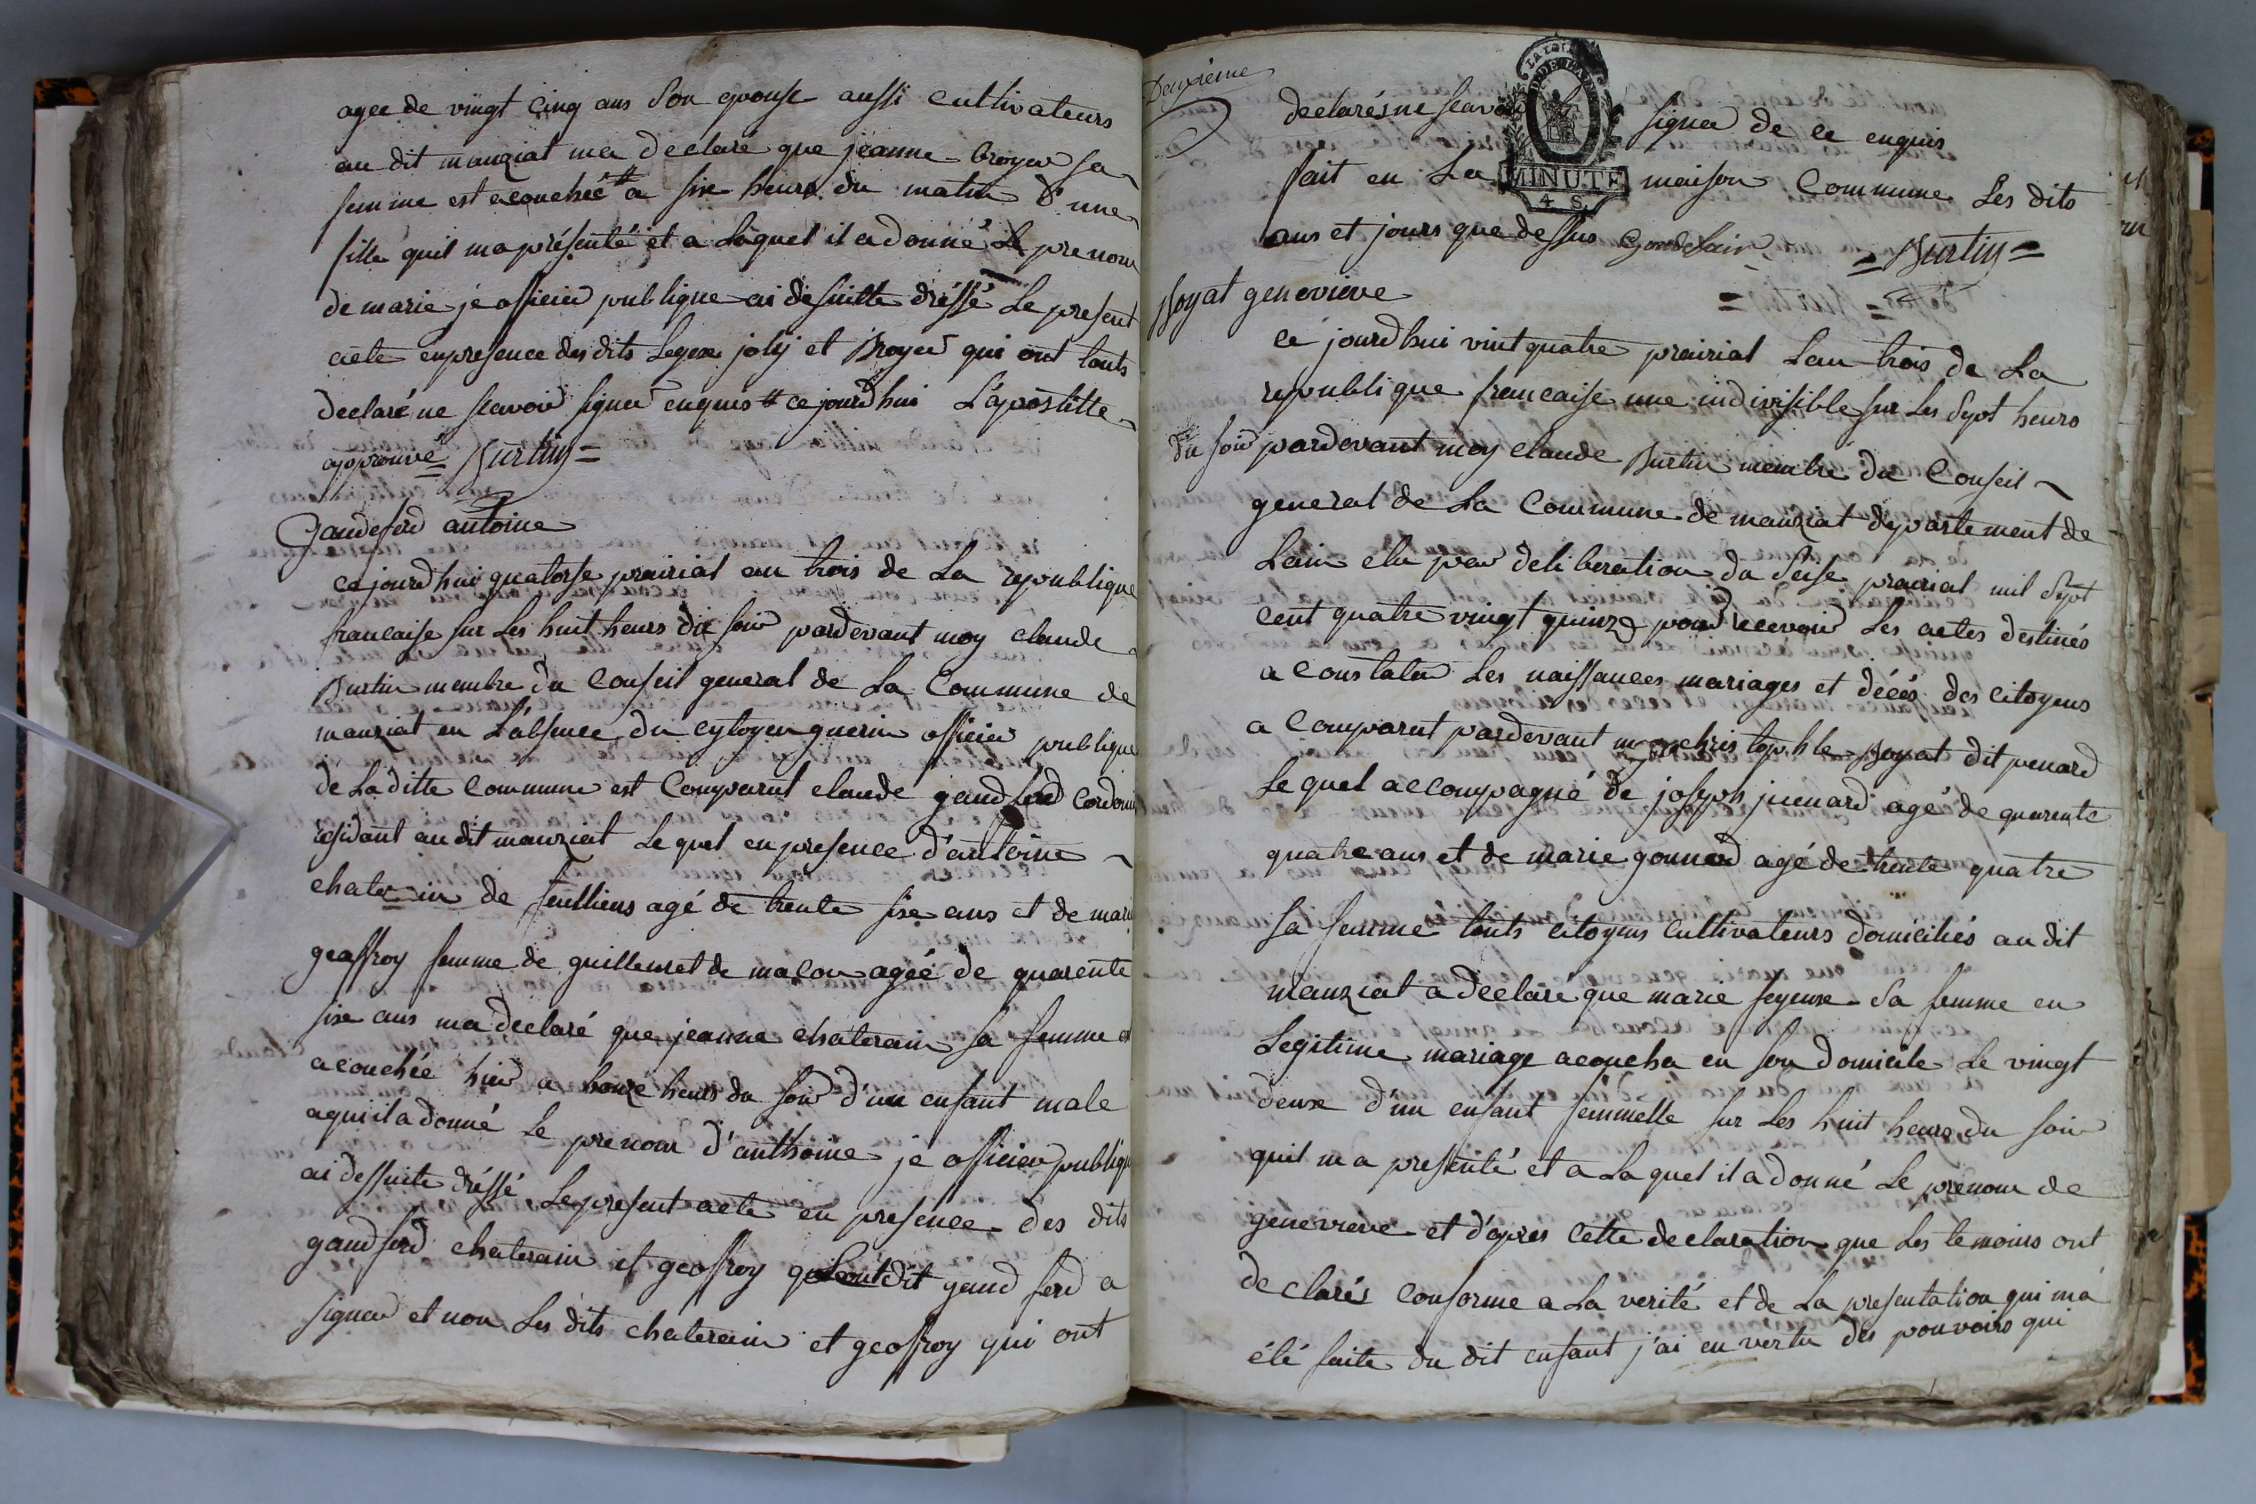 agee de vingt cinq ans son epouse aussi cultivateurs
au dit manziat ma declaré que jeanne broyer sa
femme est acouchée # a six heurs du matin d'une
fille quil ma présenté et a laquel il a donné le prenom
de marie je officier publique ai desuitte dréssé le present
acte en presence des dits joly et Broyer qui ont touts
declaré ne scavoir signer enquis # ce jourdhui L'apostitte
approuvé = Burtin =
Gandeferd antoine
ce jourdhui quatorse prairial an trois de La republique
francaise sur les huit heurs du soir pardevant moy claude
Burtin membre du Conseil general de La Commune de
manziat en L'absence du cytoyen guerin officier publique
de Laditte Commune est Comparut claude gandferd
residant audit manziat Lequel en presence d'antoine
chaterin de feilliens agé de trente six ans et de marie
geoffroy femme de guillemet de macon agée de quarente
six ans ma declaré que jeanne chaterain sa femme
acouchée hier a heurs du soir d'un enfant male
aqui il a donné Le prenom d'anthoine je officier publique
ai dessuite dréssé Le present acte en presence des dits
gandferd chaterain et geoffroy dit gandferd a
signer et non Les dits chaterain et geoffroy qui ont
Deuxième
declarés ne scavoir signer de ce enquis
LA LOI
MINUTE
4 S.
fait en La maison Commune Les dits
ans et jours que dessus = Burtin =
Boyat genevieve
cé jourdhui vint quatre prairial Lan trois de La
republique francaise une indivisible sur Les Sept heurs
du soir pardevant moy claude Burtin membre du Conseil
general de La Commune de manziat departement de
Lain elu par deliberation du Seise prairial mil Sept
cent quatre vingt quinze pour recevoir Les actes destinés
a constater Les naissances mariages et décés des citoyens
a Comparut pardevant moy christophle Boyat dit penard
Lequel accompagné de joseph agé de quarente
quatre ans et de marie gonnard agé de trente quatre
sa femme touts citoyens cultivateurs domiciliés au dit
manziat a declaré que marie feyeux sa femme en
Legitime mariage acoucha en son domicile Le vingt
deux d'un enfant femmelle sur Les huit heurs du soir
quil ma presenté et a Laquel il a donné Le prenom de
genevieve et d'apres cette declaration que Les temoins ont
declarés conforme a La verité et de La presentation qui ma
été faite du dit enfant j'ai en vertu des pouvoirs qui